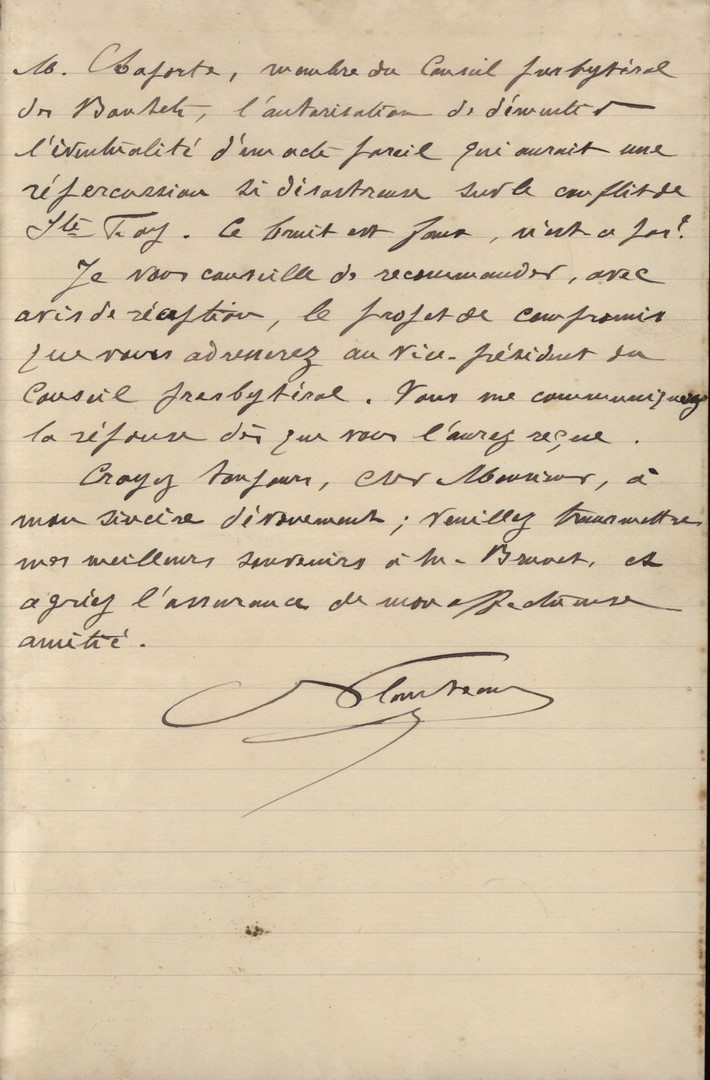 M. Laporte, membre du Conseil presbytéral
des , l'autorisation de démentir
l'éventualité d'un acte pareil qui aurait une
répercussion si désastreuse sur le conflit de
Ste Foy. Ce bruit est faux, n'est ce pas?
Je vous conseille de recommander, avec
avis de réception, le projet de compromis
que vous adresserez au Vice-président du
Conseil presbytéral. Vous me communiquerez
la réponse dès que vous l'aurez reçue.
Croyez toujours, cher Monsieur, à
mon sincère dévouement; veuillez transmettre
mes meilleurs souvenirs à M. , et
agréez l'assurance de mon affectueuse
amitié.